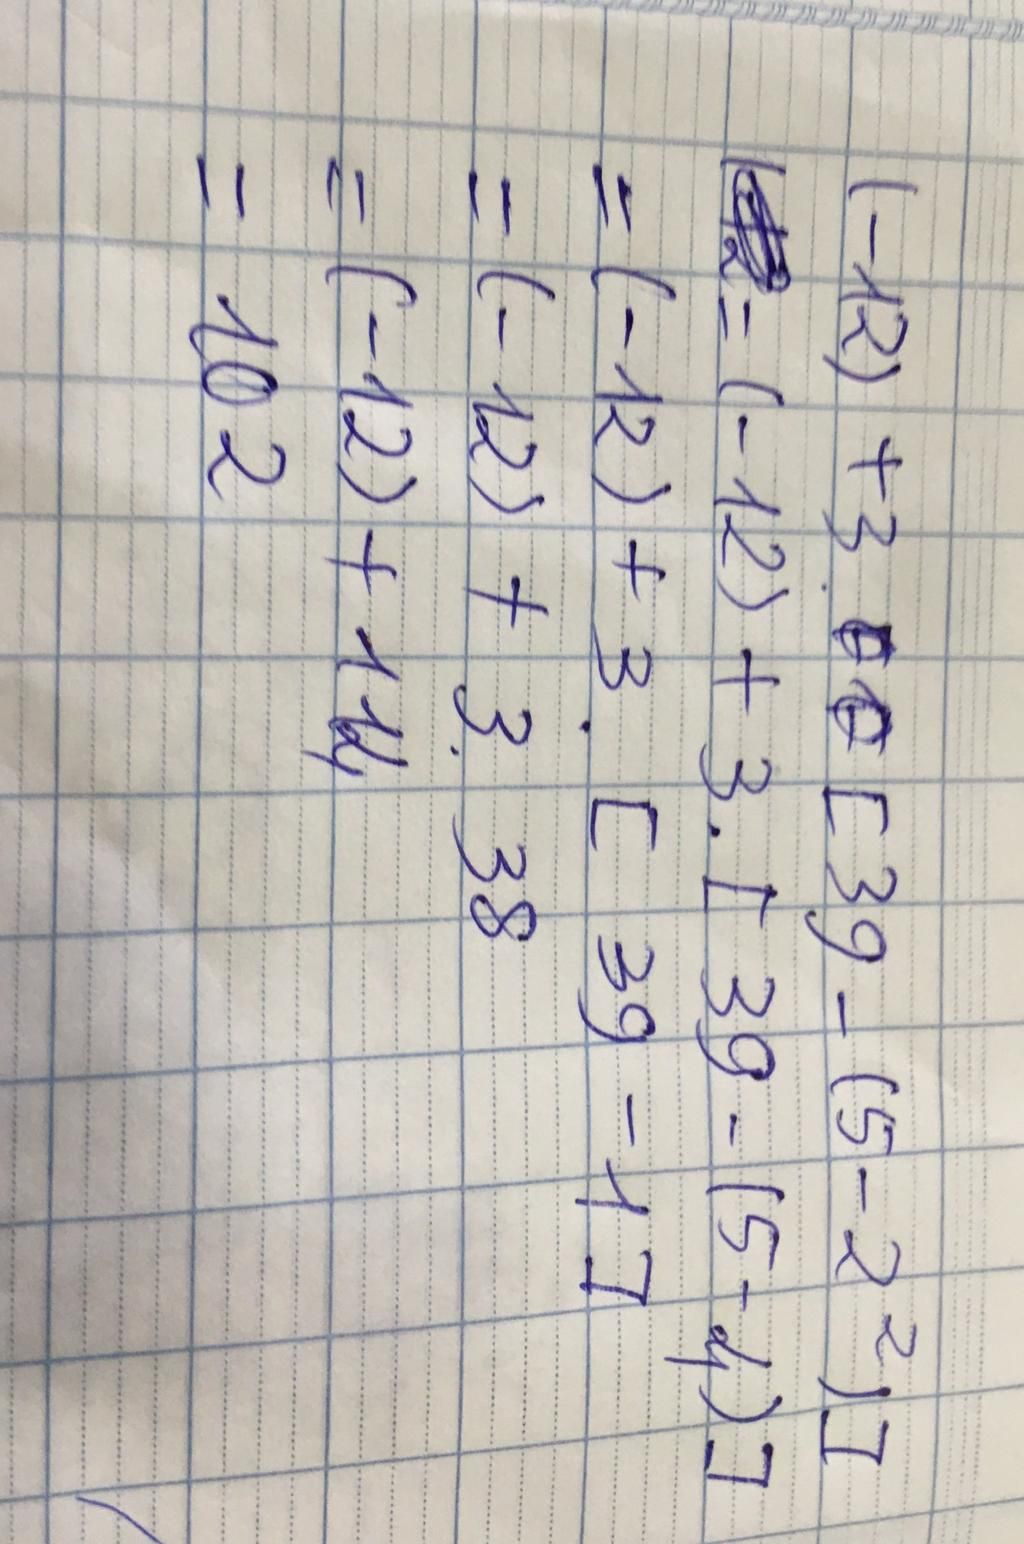 (-12) + 3. [39 - (5 - 2²)]
= (-12) + 3. [39 - (5 - 4)]
= (-12) + 3. [39 - 1]
= (-12) + 3. 38
= (-12) + 114
= 102